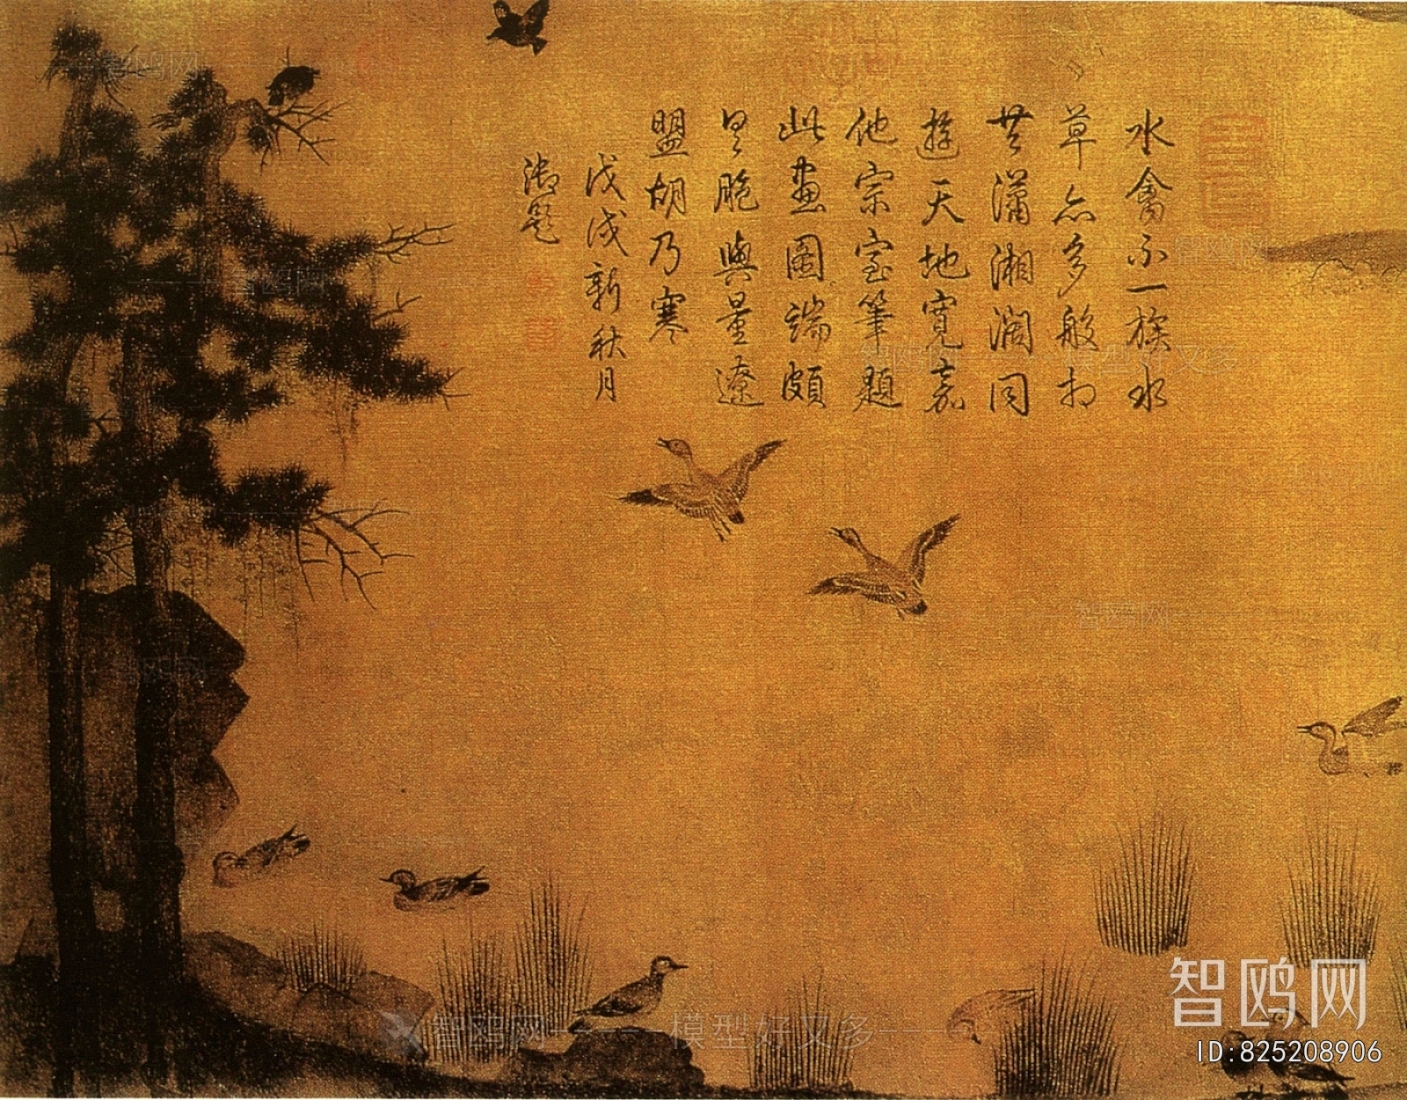 水禽不一族水
草亦多般相
共瀟湘濶同
遊天地寬嘉
他宗室筆題
此畫圖端頗
具胞與量遼
盟胡乃寒
戊戌新秋月
御題
智鸥网
ID:825208906
智鸥网 模型好又多